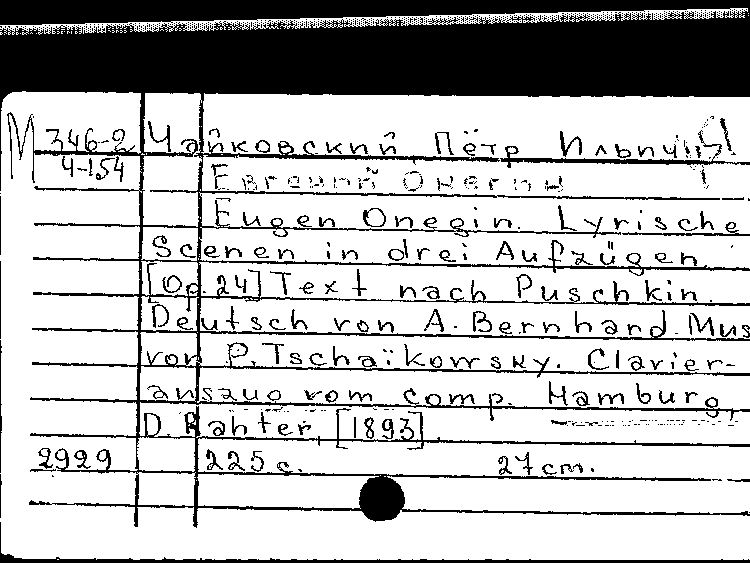 М 346-2 Чайковский, Пётр Ильич
4-154 Евгений Онегин
Eugen Onegin. Lyrische
Scenen in drei Aufzügen.
[Op. 24] Text nach Puschkin.
Deutsch von A. Bernhard. Mus
von P. Tschaïkowsky. Clavier-
anszug vom comp. Hamburg,
D. Rahter, [1893].
2929 225 с. 27 cm.